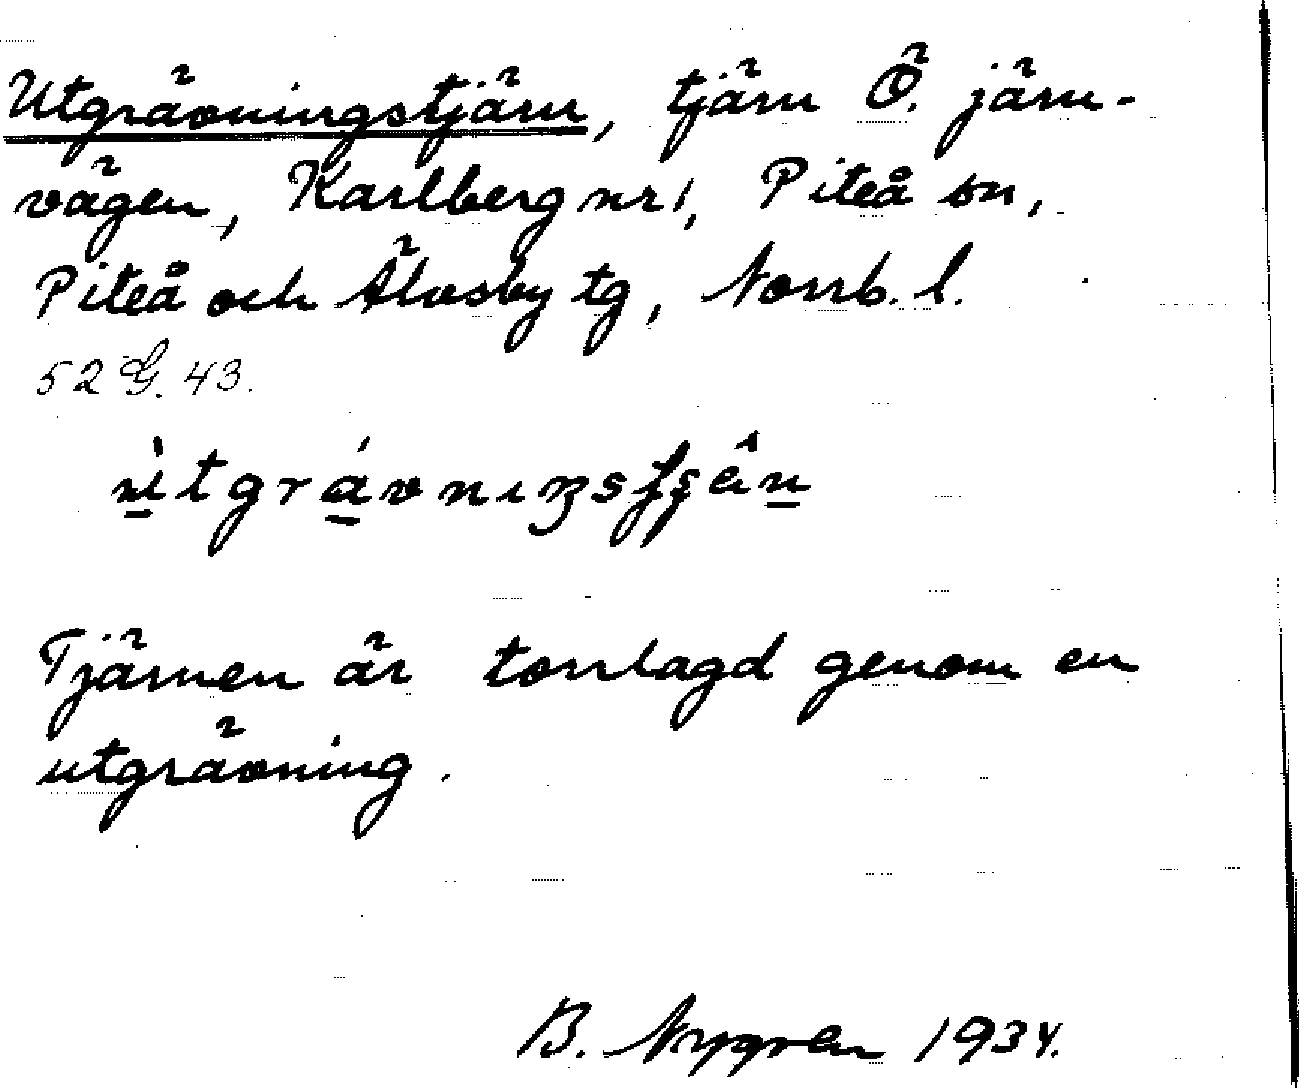 Utgrävningstjärn, tjärn Ö. järn-
vägen, Karlberg nr 1, Piteå sn,
Piteå och Älvsby tg, Norrb. l.
52 G. 43.
Tjärnen är torrlagd genom en
utgrävning.
B. Nygren 1934.